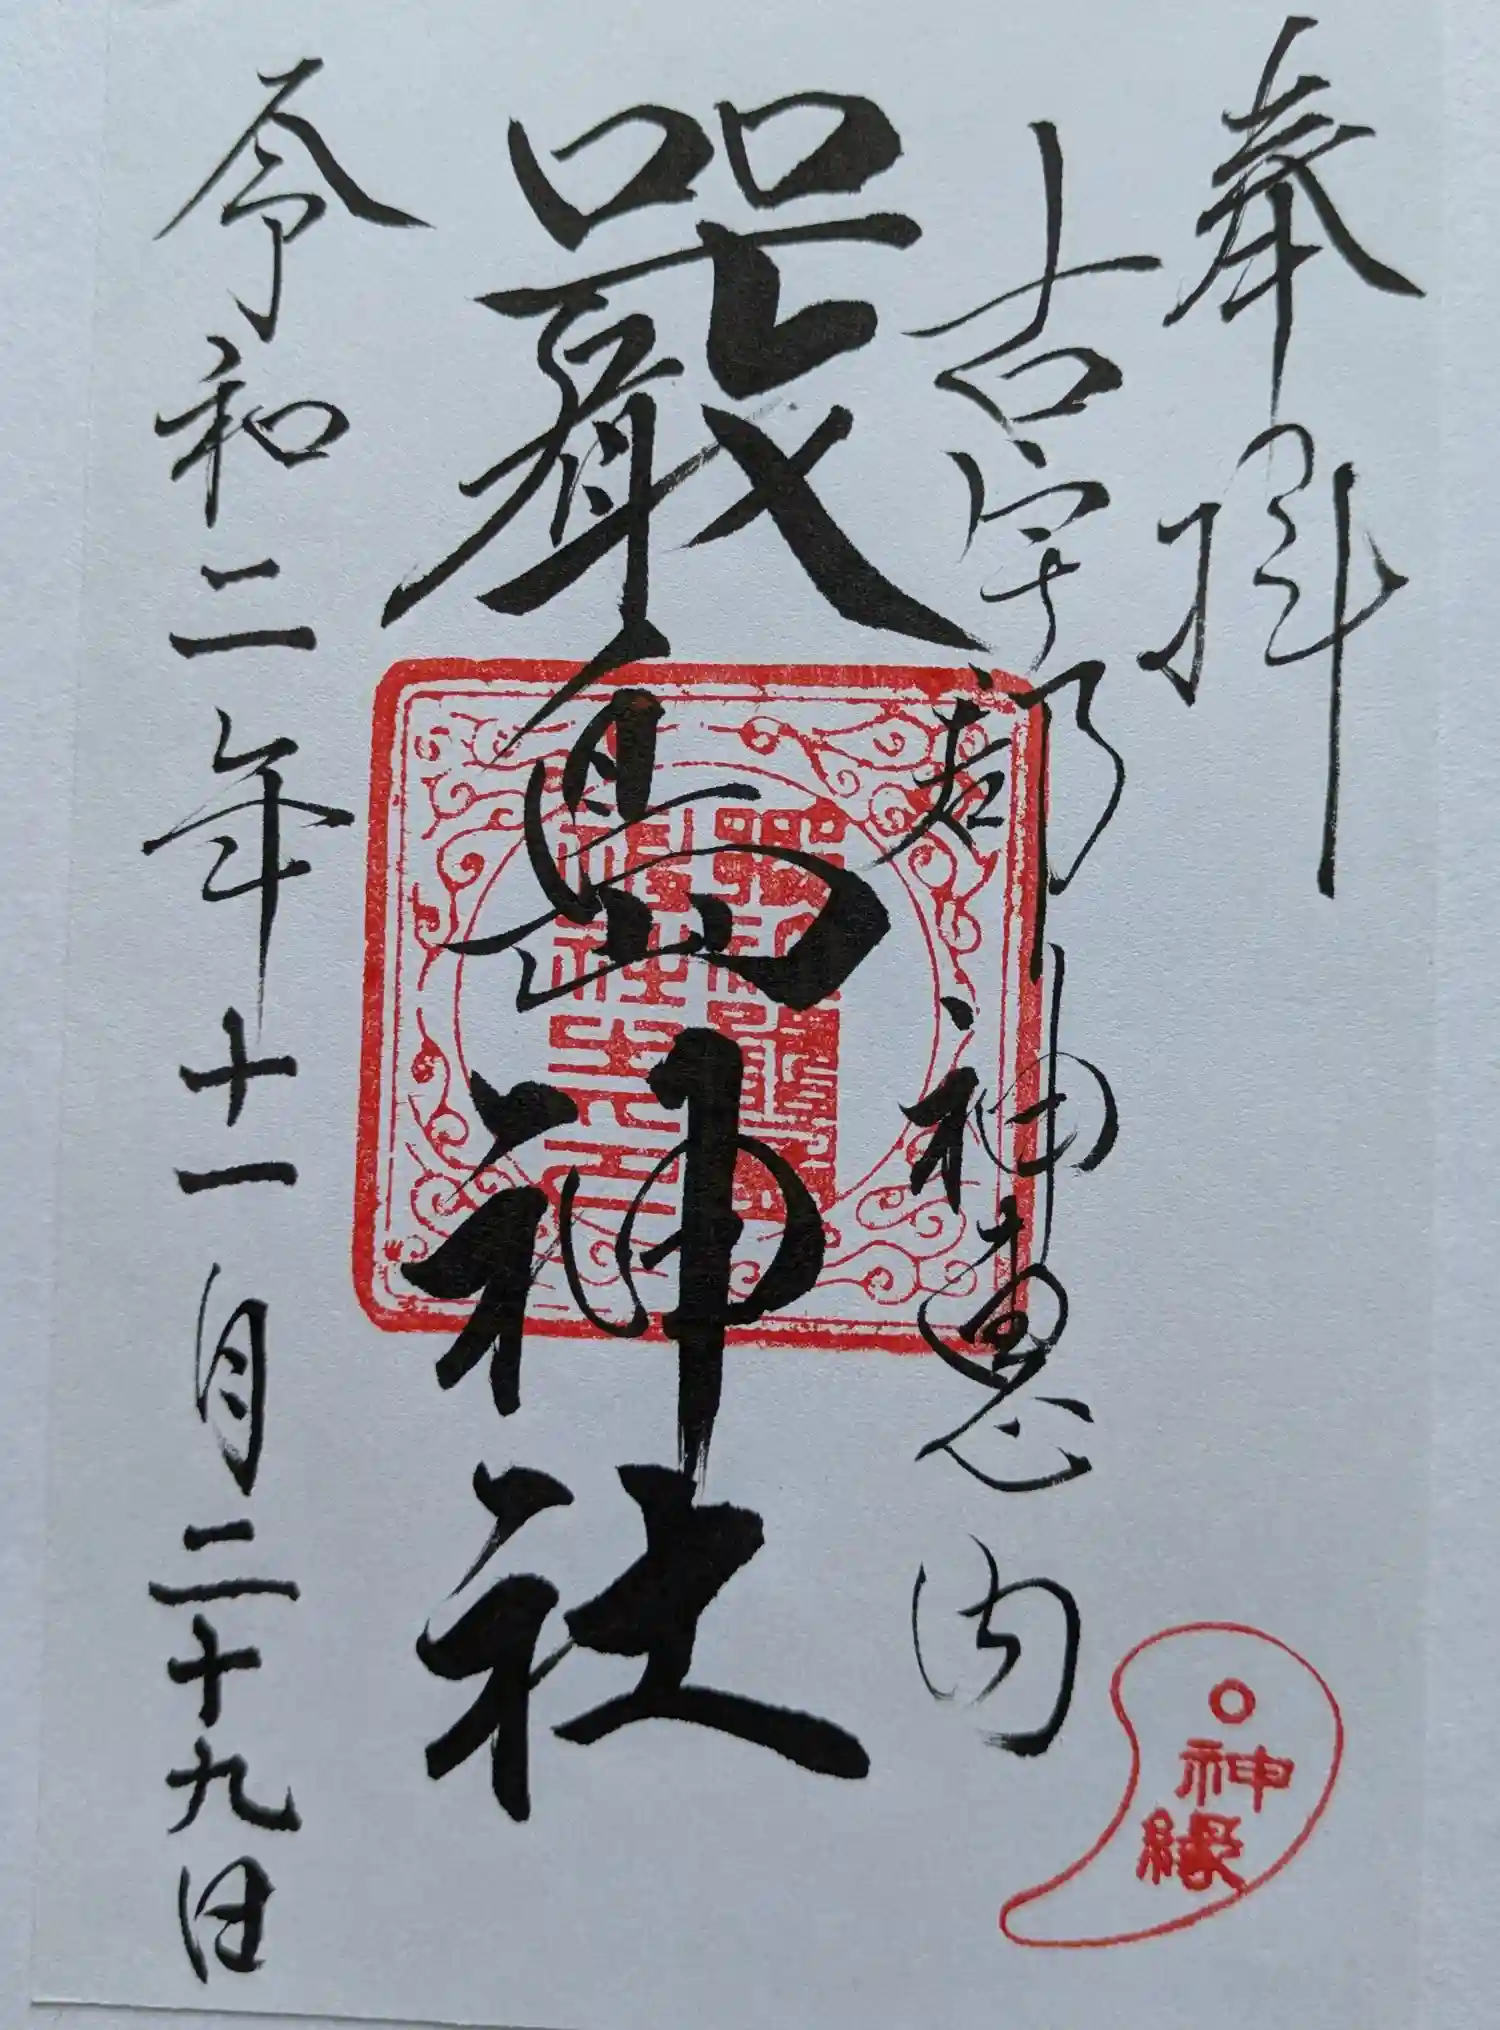 奉拝
古宇郡神恵内
嚴島神社
令和二年十一月二十九日
神
縁